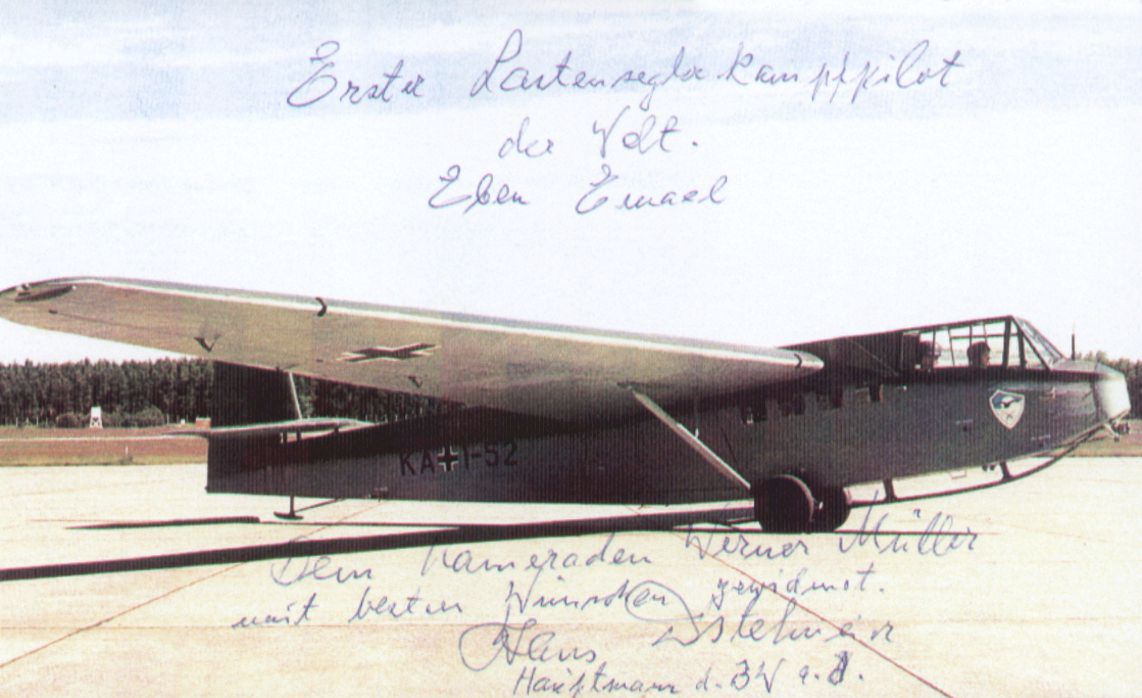 Erster Lastenseglerkampfpilot
der Welt.
Eben Emael
KA+1-52
Dem Kameraden Werner Müller
mit besten Wünschen gewidmet.
Hans Distelmeier
Hauptmann d. BW a.d.